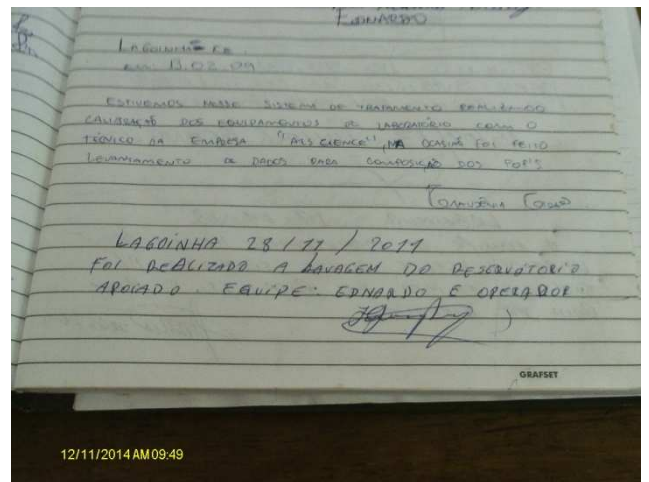 EDNARDO
LAGOINHA
em 13.02.09
ESTIVEMOS NESSE SISTEMA DE TRATAMENTO REALIZANDO
CALIBRAÇÃO DOS EQUIPAMENTOS DE LABORATÓRIO COM O
TÉCNICO DA EMPRESA CIENCE", NA OCASIÃO FOI FEITO
LEVANTAMENTO DE DADOS PARA COMPOSIÇÃO DOS POP'S
LAGOINHA 28/11/2011
FOI REALIZADO A LAVAGEM DO RESERVATORIO
APOIADO. EQUIPE: EDNARDO E OPERADOR
GRAFSET
12/11/2014 AM 09:49